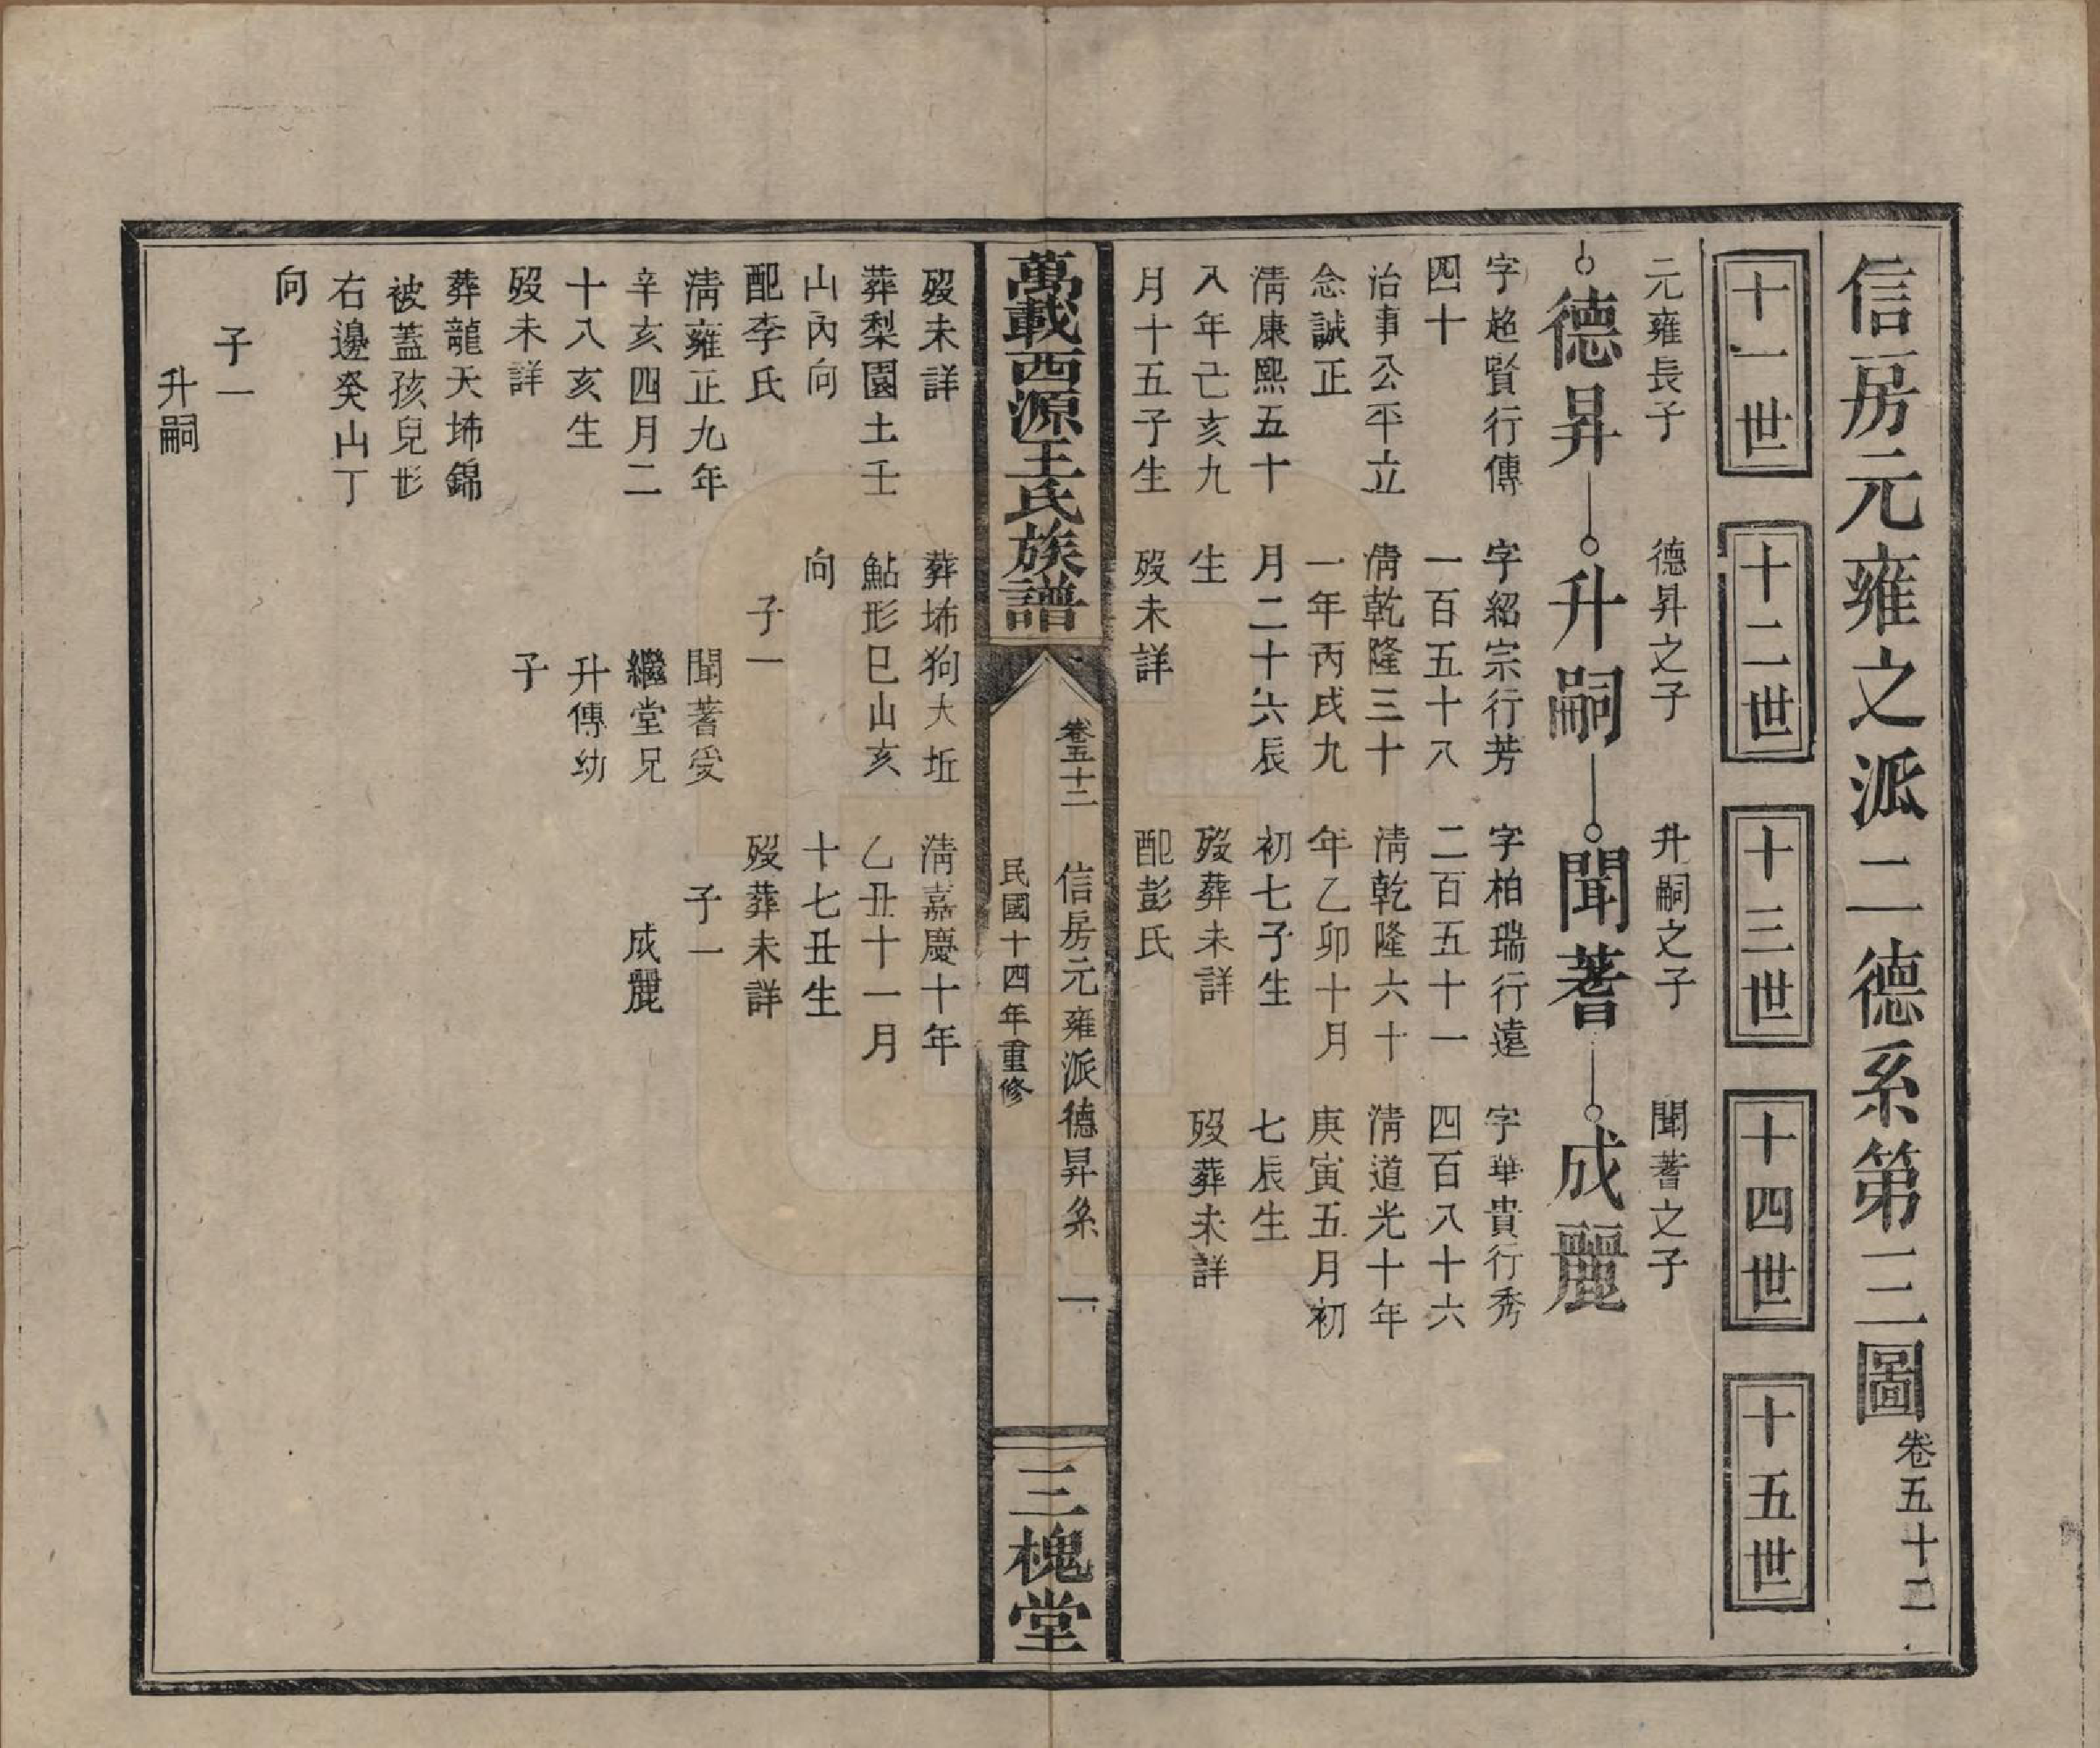 信房元雍之派二德系第三圖卷五十二
十一世
十二世
十三世
十四世
十五世
元雍長子
德昇
字超賢行傳
四十
治事公平立
念誠正
淸康熙五十
八年己亥九
月十五子生
歿未詳
葬梨園土壬
山內向
配李氏
淸雍正九年
辛亥四月二
十八亥生
歿未詳
葬龍天㘵錦
被蓋孩兒形
右邊癸山丁
向
子一
升嗣
德昇之子
升嗣
字紹宗行芳
一百五十八
淸乾隆三十
一年丙戌九
月二十六辰
生
歿未詳
葬㘵狗大坵
鮎形巳山亥
向
子一
聞蓍受
繼堂兄
升傳幼
子
升嗣之子
聞蓍
字柏瑞行遠
二百五十一
淸乾隆六十
年乙卯十月
初七子生
歿葬未詳
配彭氏
淸嘉慶十年
乙丑十一月
十七丑生
歿葬未詳
子一
成麗
聞蓍之子
成麗
字華貴行秀
四百八十六
淸道光十年
庚寅五月初
七辰生
歿葬未詳
萬載西源王氏族譜
卷五十二
信房元雍派德昇系
一
民國十四年重修
三槐堂